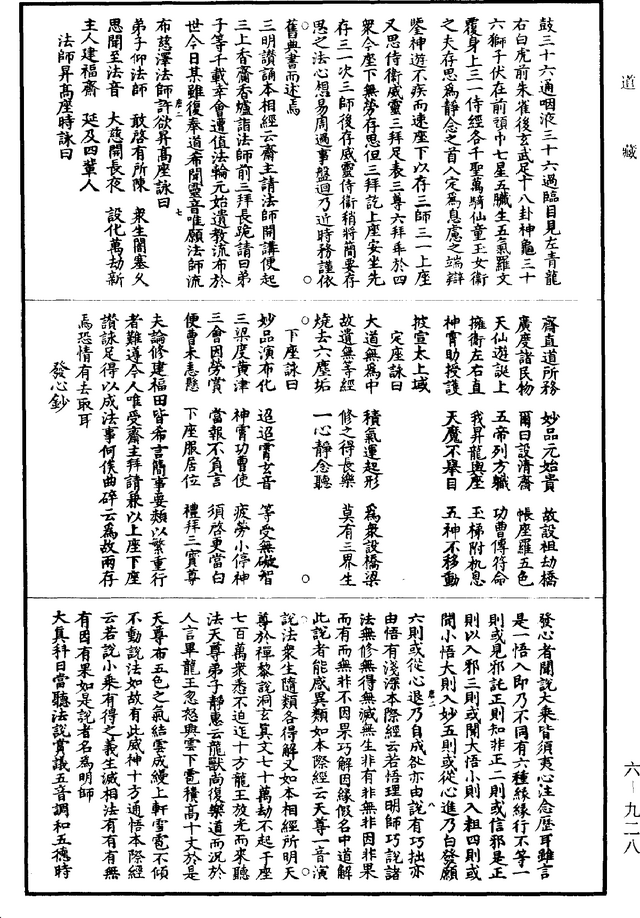 道藏
鼓三十六過咽液三十六過臨目見左青龍
右白虎前朱雀後玄武足十八卦神龜三十
六獅子伏在前頭巾七星五臟生五氣羅文
覆身上三一侍經各千聖萬騎仙童玉女衛
之夫存思為靜念之首入定為息慮之端辯
瑩神遊不疾而速座下以存三師三一上座
又思侍衛威靈三拜足表三尊六拜乖於四
衆今座下無勞存思但三拜訖上座安坐先
存三一次三師後存威靈侍衛稍將簡要存
思之法心想易周過事盤迴乃近時務謹依
舊典書而述焉
三明讚誦本相經云齋主請法師開講便起
三上香齋香爐詣法師前三拜長跪請曰弟
子等千載幸會遭值法輪元始遺教流布於
世今日某雖復奉道希聞靈音唯願法師流
布慈澤法師許欲昇高座詠曰
弟子仰法師　敢啓有所陳　衆生闇塞久
思聞至法音　大慈開長夜　設化萬劫新
主人建福齋　延及四輩人
法師昇高座時詠曰
齋直道所務　妙品元始貴　故設祖劫橋
廣度諸民物　爾日設清齋　帳座羅五色
天仙遊誕上　五帝列方職　功曹傳符命
擁衛左右直　我昇龍輿座　玉梯附机息
神霄助授護　天魔不舉目　五神不移動
披宣太上域
定座詠曰
大道無為中　積氣運起形　為衆設橋梁
故遺無等經　修之得長樂　莫有三界生
燒去六塵垢　一心靜念聽
下座詠曰
妙品演布化　迢迢霄玄音　等受無礙智
三梁度黃津　神霄功曹使　疲勞小停神
三會因勞賞　當報不負言　須啓更當白
便曹未悉懸　下座服居位　禮拜三寶尊
夫論修建福田皆希言簡事要類以繁重行
者難遵今人唯受齋主拜請兼以上座下座
讚詠足得以成法事何俟曲碎云為故兩存
焉恐情有去取耳
發心鈔
發心者聞說大乘皆須夷心注念歷耳雖言
是一悟入即乃不同有六種緣緣行不等一
則或見邪託正則知非正二則或信邪是正
則以入邪三則或聞大悟小則入粗四則或
聞小悟大則入妙五則或從心進乃白發願
六則或從心退乃自成於亦由說有巧拙亦
由悟有淺深本際經云若悟理明師巧說諸
法無修無得無滅無生非有非無非因非果
而有而無非不因果巧解因緣假名中道解
此說者能感異類如本際經云天尊一音演
說法衆生隨類各得解又如本相經所明天
尊於禪黎說洞玄真文七十萬劫不起于座
七百萬衆悉不迫迮十方龍王放光而來聽
法天尊弟子靜惠云龍獸尚復樂道而況於
人言畢龍王忽怒興雲下雹積高十丈於是
天尊布五色之氣結雲成縵上軒雪雹不傾
不動說法如故有此威神十方通悟本際經
云若說小乘有得之義生滅相法有有有無
有因有果如是說者名為明師
大真科曰當聽法說賞議五音調和五德時
六－九二八